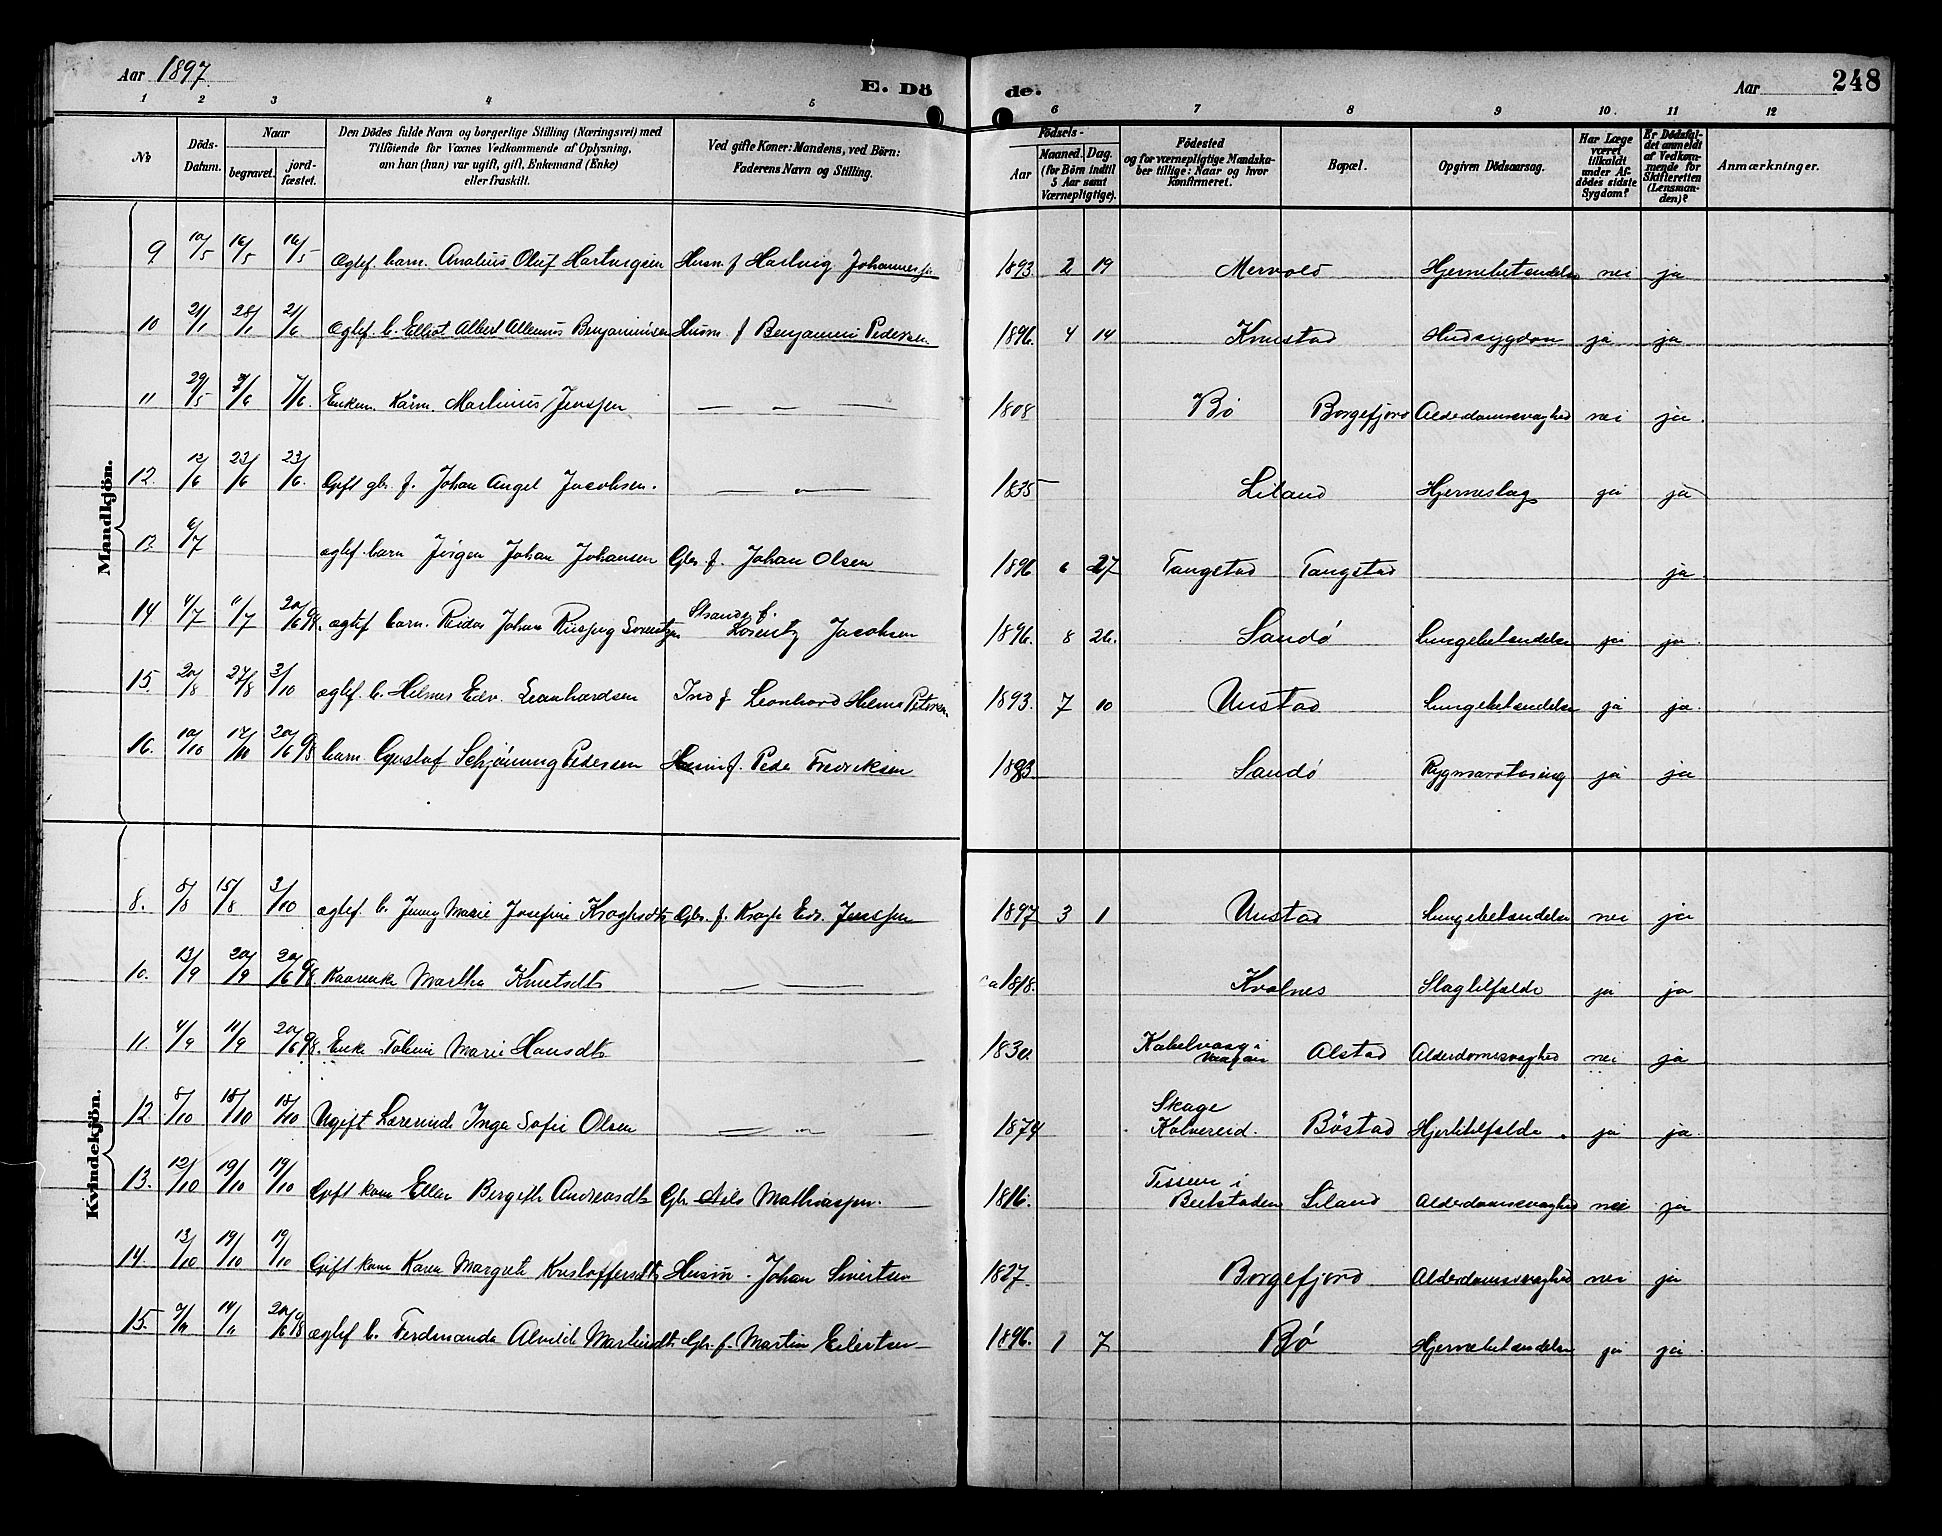 Aar 1897.
E. Dö
de.
Aar
248
1 2 3 4 5 6 7 8 9 10. 11 12
No
Döds-Datum.
Naar
begravet.
jordfæstet.
Den Dödes fulde Navn og borgerlige Stilling (Næringsvei) med Tilföiende for Voxnes Vedkommende af Oplysning, om han (hun) var ugift, gift, Enkemand (Enke) eller fraskilt.
Ved gifte Koner: Mandens, ved Börn: Faderens Navn og Stilling.
Födsels-
Aar
Maaned. Dag.
(for Börn indtil 5 Aar samt Værnepligtige).
Födested og for værnepligtige Mandskaber tillige: Naar og hvor konfirmeret.
Bopæl.
Opgiven Dödsaarsag.
Har Læge været tilkaldt under Afdödes sidste Sygdom?
Er Dödsfaldet anmeldt af Vedkommende for Skifteretten (Lensmanden)?
Anmærkninger.
Mandkjön.
9 10/5 16/5 16/5 Ægtef. barn. Analius Oluf Hartvigsen Husm. f Hartvig Johannes 1893 2 19 Mervold Hjernebetændelse nei ja
10 21/1 28/1 2/6 Ægtef. b. Ellert Albert Benjaminsen Husm. f Benjamin Pedersen 1896. 4 14 Knustad Hudsygdom ja ja
11 29/5 7/6 7/6 Enkem. Kårm. Martinus Jenssen — — — 1808 Bö Borgefjord Alderdomssvaghed nei ja.
12. 12/6 23/6 23/6 Gift gbr. f. Johan Angel Jacobsen. — " — 1835 Liland Hjerneslag ja ja
13. 6/7 ægtef. barn Jörgen Johan Johansen Gbr. f. Johan Olsen 1896 6 27 Tangstad Tangstad ja.
14 4/7 11/7 20/6 98. ægtef barn. Reidar Johan Lorentzen Strands. f. Lorentz Jacobsen 1896. 8 26. Sandö Lungebetændelse ja ja.
15. 20/8 27/8 3/10 ægtef b. Hilmar Edv. Leonhardsen Ind f Leonhard Hilmar Petersen 1893. 7 10 Unstad Lungebetændelse ja ja.
16. 10/10 17/10 20/6 98 barn. Gustaf Schjönning Pedersen Husm f. Peder Fredriksen 1883 Sandö Rygmarvstæring ja ja
Kvindekjön.
8. 5/8 15/8 3/10 ægtef. b. Jenny Marie Josefine Kroghsdtr Gbr. f. Krogh Edv. Jenssen 1897 3 1 Unstad Lungebetændelse nei ja
10. 13/9 20/9 20/6 98. Kaarenke Martha Knutsdtr — " — ca 1818. Kvalnes Slagtilfælde ja ja
11. 4/9 11/9 20/6 98. Enke Marie Hansdtr 1830. Kabelvaag i Vaagan Alstad Alderdomssvaghed nei ja
12. 8/10 18/10 18/10 Ugift Lærerind Inga Sofie Olsen — " — 1874 Skage Kolvereid. Böstad Hjertetilfælde. ja ja.
13. 12/10 19/10 19/10 Gift kone Ellen Bergith Andreasdtr Gbr Nils Mathiassen. 1816. i Beitstaden Liland Alderdomssvaghed nei ja
14. 13/10 19/10 19/10 Gift kone Karen Margrete Kristoffersdtr Husm. Johan Sivertsen 1827. Borgefjord Alderdomssvaghed nei ja
15. 7/11 14/11 20/6 98 ægtef b. Ferdinanda Alvilde Martinsdtr Gbr. f. Martin Eilertsen 1896. 1 7 Bö Hjernebetændelse ja ja